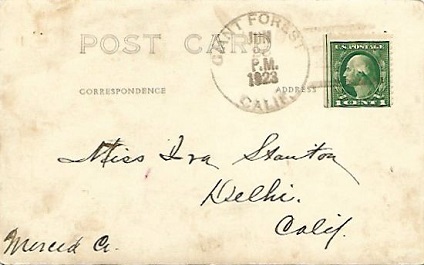 POST CARD
GIANT FOREST
JUN
P.M.
1923
CALIF.
U.S. POSTAGE
1 CENT 1
CORRESPONDENCE
ADDRESS
Miss Iva Stanton
Delhi.
Calif.
Merced Co.